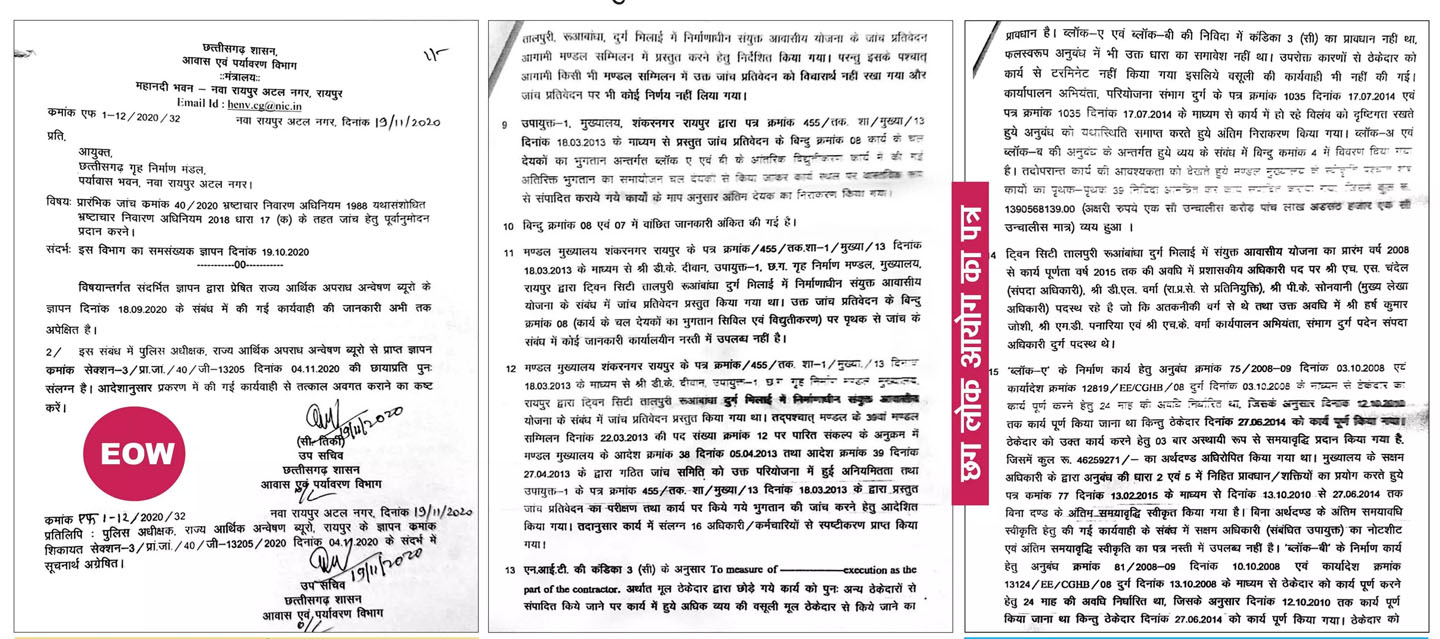 छत्तीसगढ़ शासन,
आवास एवं पर्यावरण विभाग
::मंत्रालय::
महानदी भवन – नवा रायपुर अटल नगर, रायपुर
Email Id : henv.cg@nic.in
1/-
कमांक एफ 1-12/2020/32 नवा रायपुर अटल नगर, दिनांक 19/11/2020
प्रति,
आयुक्त,
छत्तीसगढ़ गृह निर्माण मंडल,
पर्यावास भवन, नवा रायपुर अटल नगर।
विषयः प्रारंभिक जांच कमांक 40/2020 भ्रष्टाचार निवारण अधिनियम 1988 यथासंशोधित
भ्रष्टाचार निवारण अधिनियम 2018 धारा 17 (क) के तहत जांच हेतु पूर्वानुमोदन
प्रदान करने।
संदर्भः इस विभाग का समसंख्यक ज्ञापन दिनांक 19.10.2020
-----------00-----------
विषयान्तर्गत संदर्भित ज्ञापन द्वारा प्रेषित राज्य आर्थिक अपराध अन्वेषण ब्यूरो के
ज्ञापन दिनांक 18.09.2020 के संबंध में की गई कार्यवाही की जानकारी अभी तक
अपेक्षित है।
2/ इस संबंध में पुलिस अधीक्षक, राज्य आर्थिक अपराध अन्वेषण ब्यूरो से प्राप्त ज्ञापन
कमांक सेक्शन–3/प्रा.जा./40/जी-13205 दिनांक 04.11.2020 की छायाप्रति पुनः
संलग्न है। आदेशानुसार प्रकरण में की गई कार्यवाही से तत्काल अवगत कराने का कष्ट
करें।
EOW
19/11/2020
उप सचिव
छत्तीसगढ़ शासन
आवास एवं पर्यावरण विभाग
कमांक एफ 1-12/2020/32 नवा रायपुर अटल नगर, दिनांक 19/11/2020
प्रतिलिपि : पुलिस अधीक्षक, राज्य आर्थिक अन्वेषण ब्यूरो, रायपुर के ज्ञापन कमांक
शिकायत सेक्शन–3/प्रां.जां./40/जी-13205/2020 दिनांक 04.11.2020 के संदर्भ में
सूचनार्थ अग्रेषित।
19/11/2020
उप सचिव
छत्तीसगढ़ शासन
आवास एवं पर्यावरण विभाग
तालपुरी, रूआबांधा, दुर्ग भिलाई में निर्माणाधीन संयुक्त आवासीय योजना के जांच प्रतिवेदन
आगामी मण्डल सम्मिलन में प्रस्तुत करने हेतु निर्देशित किया गया। परन्तु इसके पश्चात्
आगामी किसी भी मण्डल सम्मिलन में उक्त जांच प्रतिवेदन को विचारार्थ नहीं रखा गया और
जांच प्रतिवेदन पर भी कोई निर्णय नहीं लिया गया।
9 उपायुक्त-1, मुख्यालय, शंकरनगर रायपुर द्वारा पत्र क्रमांक 455/तक. शा/मुख्या/13
दिनांक 18.03.2013 के माध्यम से प्रस्तुत जांच प्रतिवेदन के बिन्दु क्रमांक 08 कार्य के चल
देयकों का भुगतान अन्तर्गत ब्लॉक ए एवं बी के आंतरिक विद्युतीकरण कार्य में की गई
अतिरिक्त भुगतान का समायोजन चल देयकों से किया जाकर कार्य स्थल पर वास्तविक रूप
से संपादित कराये गये कार्यों के माप अनुसार अंतिम देयक का निराकरण किया गया।
10 बिन्दु क्रमांक 08 एवं 07 में वांछित जानकारी अंकित की गई है।
11 मण्डल मुख्यालय शंकरनगर रायपुर के पत्र क्रमांक/455/तक.शा-1/मुख्या/13 दिनांक
18.03.2013 के माध्यम से श्री डी.के. दीवान, उपायुक्त-1, छ.ग. गृह निर्माण मण्डल, मुख्यालय,
रायपुर द्वारा टि्वन सिटी तालपुरी रूआंबांधा दुर्ग भिलाई में निर्माणाधीन संयुक्त आवासीय
योजना के संबंध में जांच प्रतिवेदन प्रस्तुत किया गया था। उक्त जांच प्रतिवेदन के बिन्दु
क्रमांक 08 (कार्य के चल देयकों का भुगतान सिविल एवं विद्युतीकरण) पर पृथक से जांच के
संबंध में कोई जानकारी कार्यालयीन नस्ती में उपलब्ध नहीं है।
12 मण्डल मुख्यालय शंकरनगर रायपुर के पत्र क्रमांक/455/तक. शा-1/मुख्या./13 दिनांक
18.03.2013 के माध्यम से श्री डी.के. दीवान, उपायुक्त-1, छ.ग गृह निर्माण मण्डल मुख्यालय,
रायपुर द्वारा टि्वन सिटी तालपुरी रूआबांधा दुर्ग भिलाई में निर्माणाधीन संयुक्त आवासीय
योजना के संबंध में जांच प्रतिवेदन प्रस्तुत किया गया था। तद्पश्चात् मण्डल के 39वां मण्डल
सम्मिलन दिनांक 22.03.2013 की पद संख्या क्रमांक 12 पर पारित संकल्प के अनुक्रम में
मण्डल मुख्यालय के आदेश क्रमांक 38 दिनांक 05.04.2013 तथा आदेश क्रमांक 39 दिनांक
27.04.2013 के द्वारा गठित जांच समिति को उक्त परियोजना में हुई अनियमितता तथा
उपायुक्त-1 के पत्र क्रमांक 455/तक. शा/मुख्या/13 दिनांक 18.03.2013 के द्वारा प्रस्तुत
जांच प्रतिवेदन का परीक्षण तथा कार्य पर किये गये भुगतान की जांच करने हेतु आदेशित
किया गया। तदानुसार कार्य में संलग्न 16 अधिकारी/कर्मचारियों से स्पष्टीकरण प्राप्त किया
गया।
13 एन.आई.टी. की कंडिका 3 (सी) के अनुसार To measure of ——————execution as the
part of the contractor. अर्थात मूल ठेकेदार द्वारा छोड़े गये कार्य को पुनः अन्य ठेकेदारों से
संपादित किये जाने पर कार्य में हुये अधिक व्यय की वसूली मूल ठेकेदार से किये जाने का
छग लोक आयोग का पत्र
प्रावधान है। ब्लॉक-ए एवं ब्लॉक-बी की निविदा में कंडिका 3 (सी) का प्रावधान नही था,
फलस्वरूप अनुबंध में भी उक्त धारा का समावेश नहीं था। उपरोक्त कारणों से ठेकेदार को
कार्य से टरमिनेट नहीं किया गया इसलिये वसूली की कार्यवाही भी नहीं की गई।
कार्यपालन अभियंता, परियोजना संभाग दुर्ग के पत्र क्रमांक 1035 दिनांक 17.07.2014 एवं
पत्र क्रमांक 1035 दिनांक 17.07.2014 के माध्यम से कार्य में हो रहे विलंब को दृष्टिगत रखते
हुये अनुबंध को यथास्थिति समाप्त करते हुये अंतिम निराकरण किया गया। ब्लॉक-अ एवं
ब्लॉक-ब की अनुबंध के अन्तर्गत हुये व्यय के संबंध में बिन्दु कमांक 4 में विवरण दिया गया
है। तदोपरान्त कार्य की आवश्यकता को देखते हुये मण्डल मुख्यालय से
कार्यो का पृथक-पृथक 39 निविदा आमंत्रित कर कार्य संपादित कराया गया, जिसमें कुल रू.
1390568139.00 (अक्षरी रुपये एक सौ उन्चालीस करोड़ पांच लाख अडसठ हजार एक सौ
उन्चालीस मात्र) व्यय हुआ ।
4 टि्वन सिटी तालपुरी रूआंबांधा दुर्ग भिलाई में संयुक्त आवासीय योजना का प्रारंभ वर्ष 2008
से कार्य पूर्णता वर्ष 2015 तक की अवधि में प्रशासकीय अधिकारी पद पर श्री एच. एस. चंदेल
(संपदा अधिकारी), श्री डी.एल. वर्मा (रा.प्र.से. से प्रतिनियुक्ति), श्री पी.के. सोनवानी (मुख्य लेखा
अधिकारी) पदस्थ रहे है जो कि अतकनीकी वर्ग से थे तथा उक्त अवधि में श्री हर्ष कुमार
जोशी, श्री एम.डी. पनारिया एवं श्री एच.के. वर्मा कार्यपालन अभियंता, संभाग दुर्ग पदेन संपदा
अधिकारी दुर्ग पदस्थ थे।
15 'ब्लॉक-ए' के निर्माण कार्य हेतु अनुबंध क्रमांक 75/2008-09 दिनांक 03.10.2008 एवं
कार्यादेश क्रमांक 12819/EE/CGHB/08 दुर्ग दिनांक 03.10.2008 के माध्यम से ठेकेदार का
कार्य पूर्ण करने हेतु 24 माह की अवधि निर्धारित था, जिसके अनुसार दिनांक 12.10.2010
तक कार्य पूर्ण किया जाना था किन्तु ठेकेदार दिनांक 27.06.2014 को कार्य पूर्ण किया गया।
ठेकेदार को उक्त कार्य करने हेतु 03 बार अस्थायी रूप से समयावृद्धि प्रदान किया गया है,
जिसमें कुल रू. 46259271/- का अर्थदण्ड अधिरोपित किया गया था। मुख्यालय के सक्षम
अधिकारी के द्वारा अनुबंध की धारा 2 एवं 5 में निहित प्रावधान/शक्तियों का प्रयोग करते हुये
पत्र कमांक 77 दिनांक 13.02.2015 के माध्यम से दिनांक 13.10.2010 से 27.06.2014 तक
बिना दण्ड के अंतिम समयावृद्धि स्वीकृत किया गया है। बिना अर्थदण्ड के अंतिम समयावधि
स्वीकृति हेतु की गई कार्यवाही के संबंध में सक्षम अधिकारी (संबंधित उपायुक्त) का नोटशीट
एवं अंतिम समयावृद्धि स्वीकृति का पत्र नस्ती में उपलब्ध नहीं है। 'ब्लॉक-बी' के निर्माण कार्य
हेतु अनुबंध क्रमांक 81/2008-09 दिनांक 10.10.2008 एवं कार्यादेश क्रमांक
13124/EE/CGHB/08 दुर्ग दिनांक 13.10.2008 के माध्यम से ठेकेदार को कार्य पूर्ण करने
हेतु 24 माह की अवधि निर्धारित था, जिसके अनुसार दिनांक 12.10.2010 तक कार्य पूर्ण
किया जाना था किन्तु ठेकेदार दिनांक 27.06.2014 को कार्य पूर्ण किया गया। ठेकेदार को